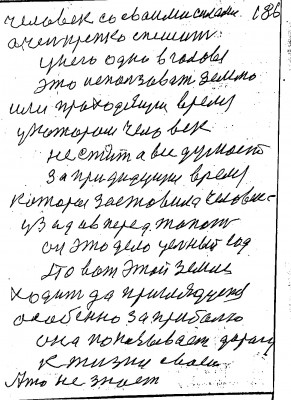 человек со своими силами 186
очен крепко спешит
у него одно в голове
это использоват землю
или проходящи время
у котором человек
не спит а вие думает
за придидущи время
которая застовила человек
узад а вперед топат
он это дело ценный год
што вот этой земле
ходит да приглядуеца
особенно за прибалю
она показывает дорогу
к жизни своей
Ато не знает